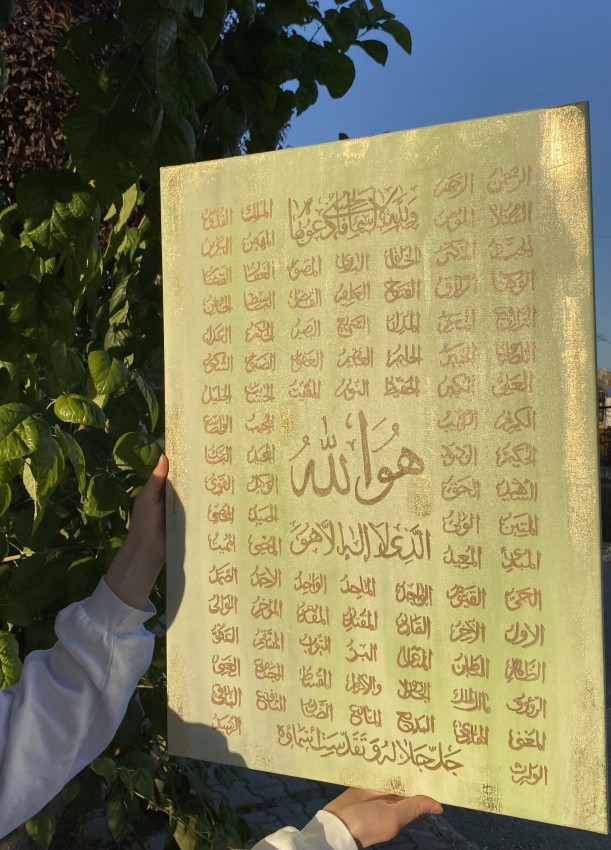 الرحمن الرحيم ولله الاسماء الحسنى فادعوه بها الملك القدوس
السلام المؤمن المهيمن العزيز
الجبار المتكبر الخالق البارئ المصور الغفار القهار
الوهاب الرزاق الفتاح العليم القابض الباسط الخافض
الرافع المعز المذل السميع البصير الحكم العدل
اللطيف الخبير الحليم العظيم الغفور الشكور
العلي الكبير الحفيظ المقيت الحسيب الجليل
الكريم الرقيب المجيب الواسع
الحكيم الودود المجيد الباعث
هُوَ اللهُ
الشهيد الحق الوكيل القوي
المتين الولي الحميد المحصي
الَّذِى لَا إِلٰهَ إِلَّا هُوَ
المبدئ المعيد المحيي المميت
الحي القيوم الواجد الماجد الواحد الاحد الصمد
الاول الاخر القادر المقتدر المقدم المؤخر الوالي
الظاهر الباطن المتعال البر التواب المنتقم العفو
الرؤف مالك الملك ذو الجلال والاكرام المقسط الجامع الغني
المغني المانع البديع النافع الضار الباقي
الوارث الرشيد
جَلَّ جَلَالُهُ وَتَقَدَّسَتْ اَسْمَاؤُهُ